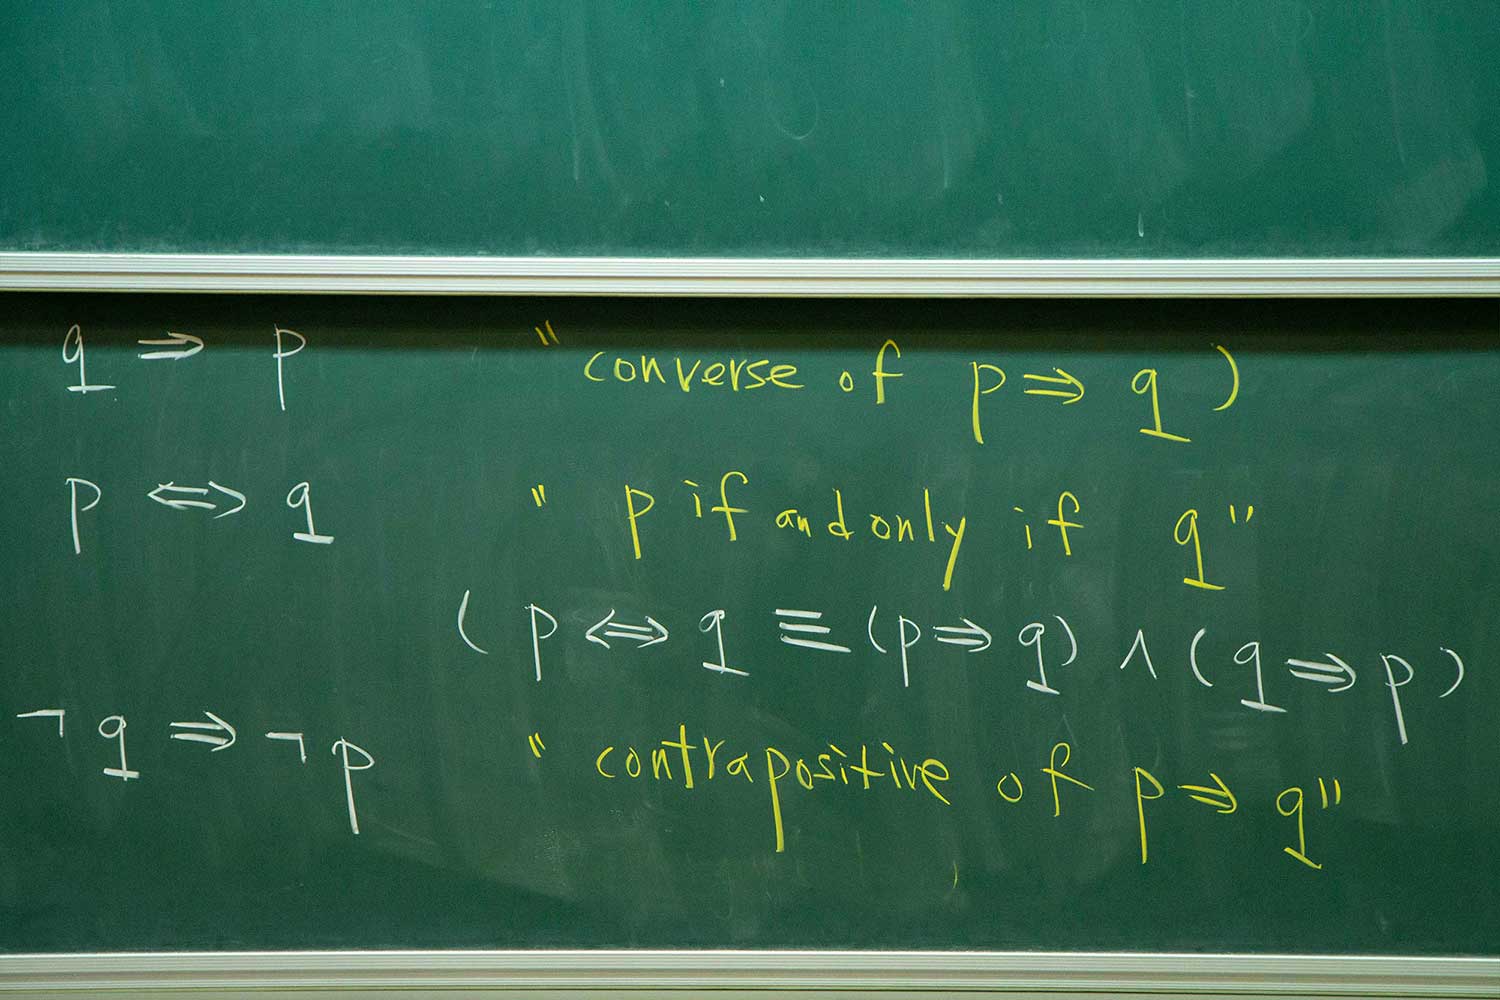 q ⇒ p "converse of p ⇒ q )
p ⇔ q " p if and only if q"
( p ⇔ q ≡ (p ⇒ q) ∧ (q ⇒ p)
¬q ⇒ ¬p "contrapositive of p ⇒ q"